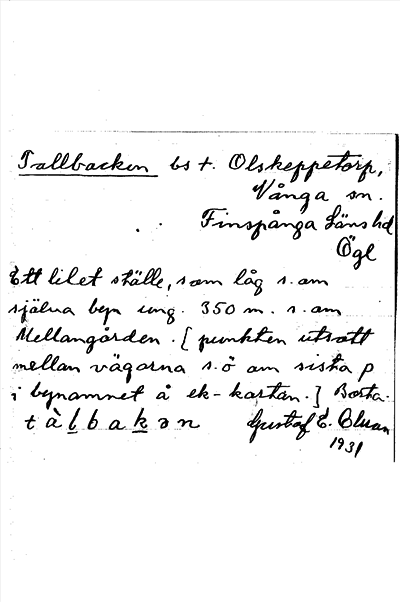 Tallbacken bs t. Olskeppetorp,
Vånga sn.
Finspånga Läns hd
Ögl
Ett litet ställe, som låg s. om
själva byn ung. 350 m. s. om
Mellangården. [punkten utsatt
mellan vägarna s.ö om sista p
i bynamnet å ek-kartan.] Borta.
tàlbakən Gustaf E.
1931